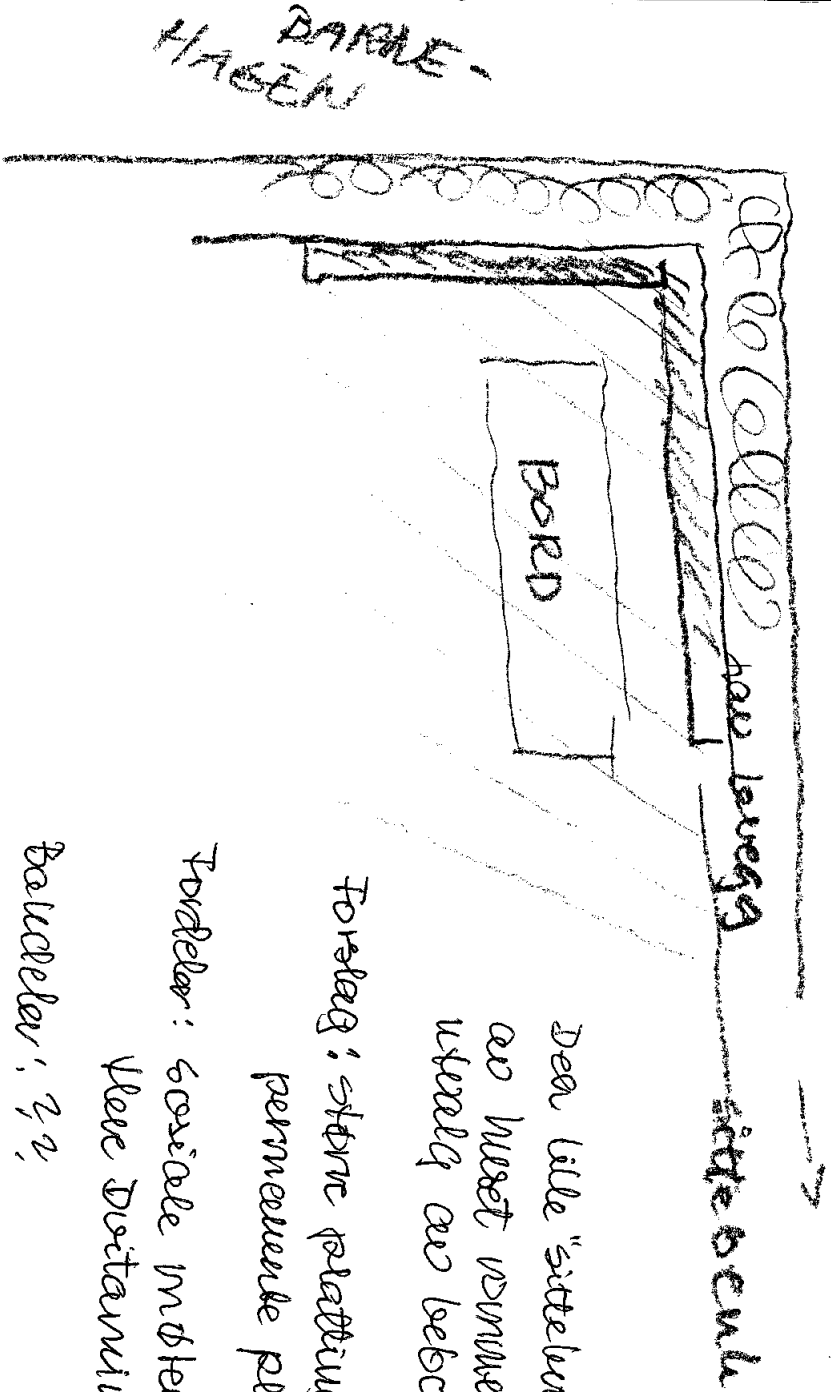 BARNE-
HAGEN
BORD
lav levegg
sittebenk
Den lille "sitteben
av huset rommer
utvalg av bebo
Forslag: større platting
permanente pl
Fordeler: sosiale møter
flere Dvitamin
Bakdeler: ??